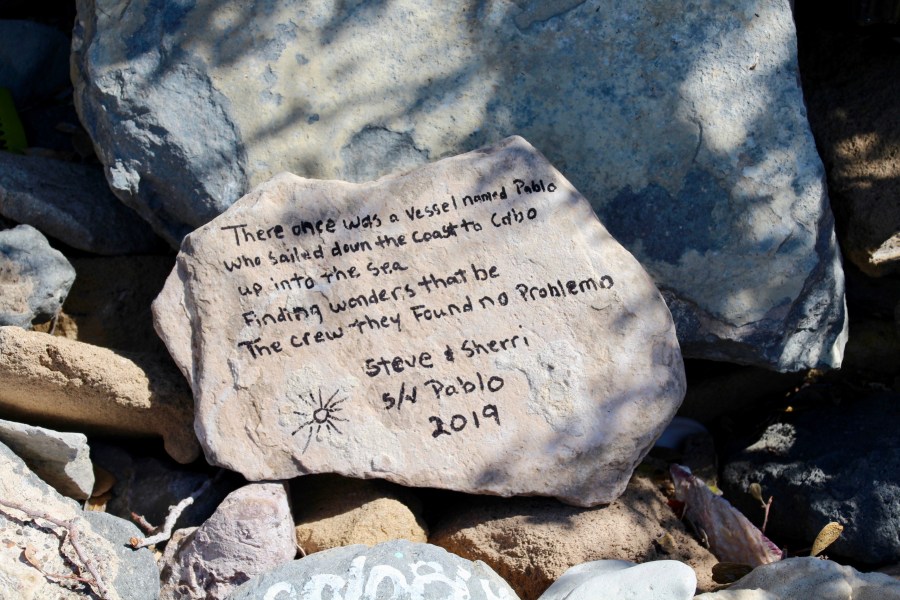 There once was a vessel named Pablo
who sailed down the coast to Cabo
up into the sea
Finding wonders that be
The crew they Found no Problemo
Steve & Sherri
s/v Pablo
2019